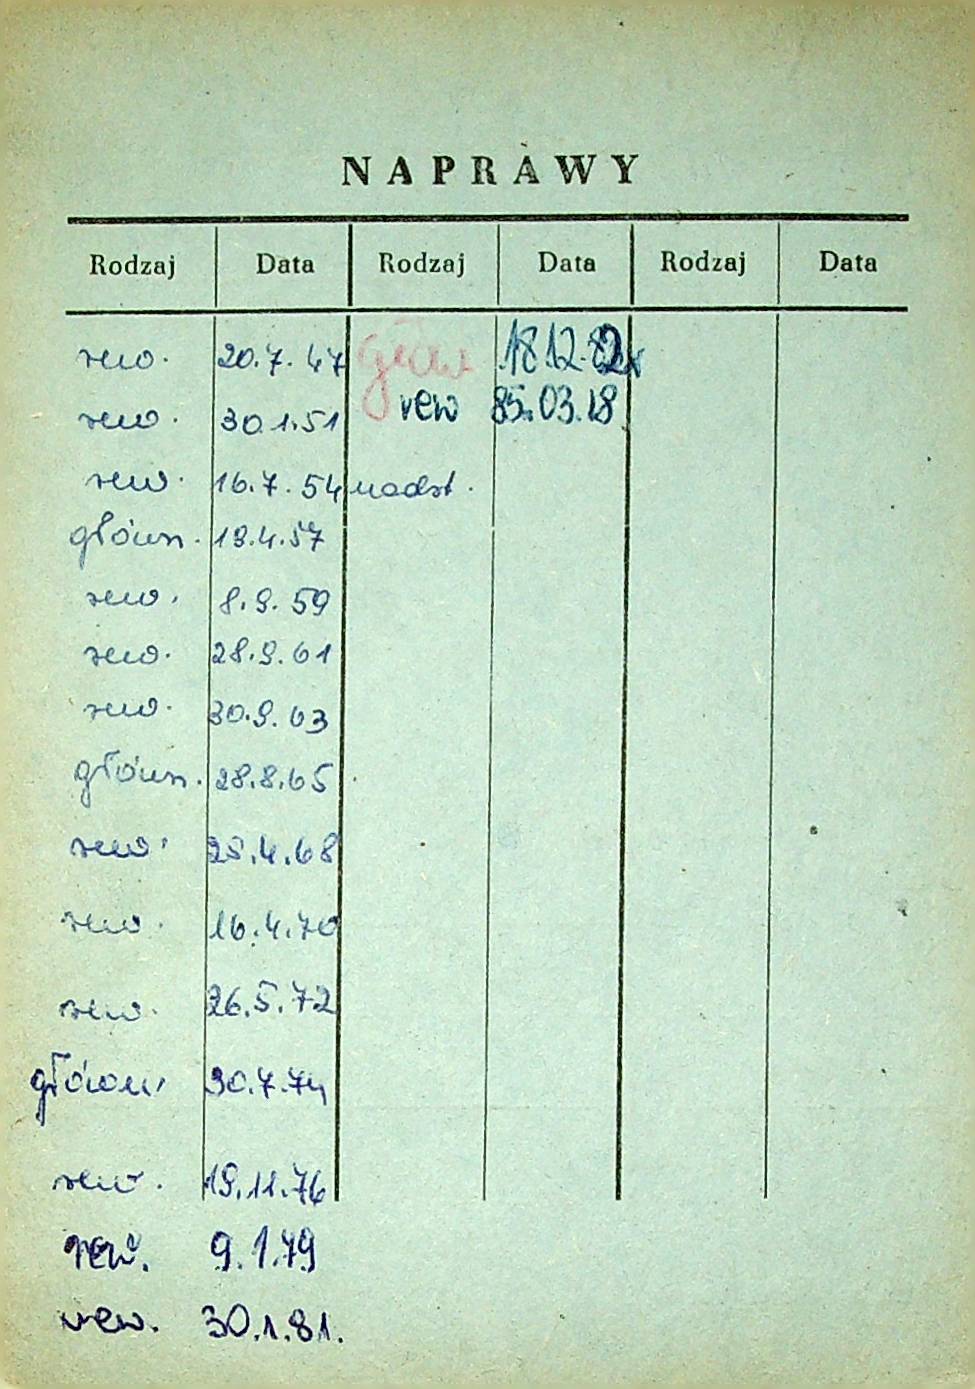 NAPRAWY
Rodzaj Data Rodzaj Data Rodzaj Data
rew. 20.7.47 główn 18.12.82
rew. 30.1.51 rew 85.03.18
rew. 16.7.54 nadst.
główn. 19.4.57
rew. 8.9.59
rew. 28.9.61
rew. 30.9.63
główn. 28.8.65
rew. 25.4.68
rew. 16.4.70
rew. 26.5.72
główn. 30.7.74
rew. 19.11.76
rew. 9.1.79
rew. 30.1.81.